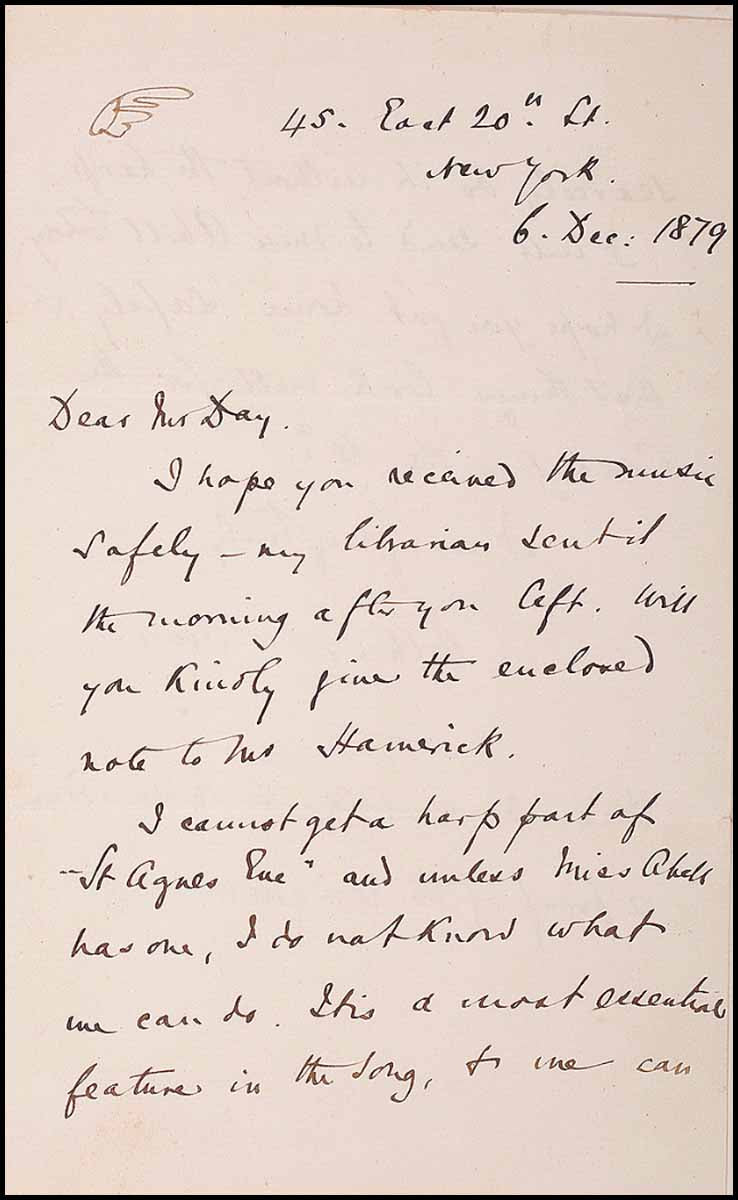 45. East 20th. St.
New York.
6. Dec: 1879
Dear Mr Day.
I hope you received the music
safely – my librarian sent it
the morning after you left. Will
you kindly give the enclosed
note to Mr Hamerick.
I cannot get a harp part of
"St Agnes Eve" and unless Miss Abell
has one, I do not know what
we can do. It is a most essential
feature in the song, & we can